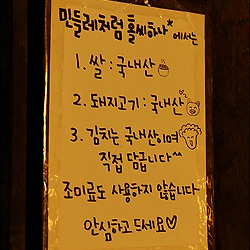 민들레처럼 홀씨하나* 에서는
1. 쌀 : 국내산
2. 돼지고기 : 국내산
3. 김치는 국내산이며
직접 담급니다^^
조미료도 사용하지 않습니다
안심하고 드세요♡